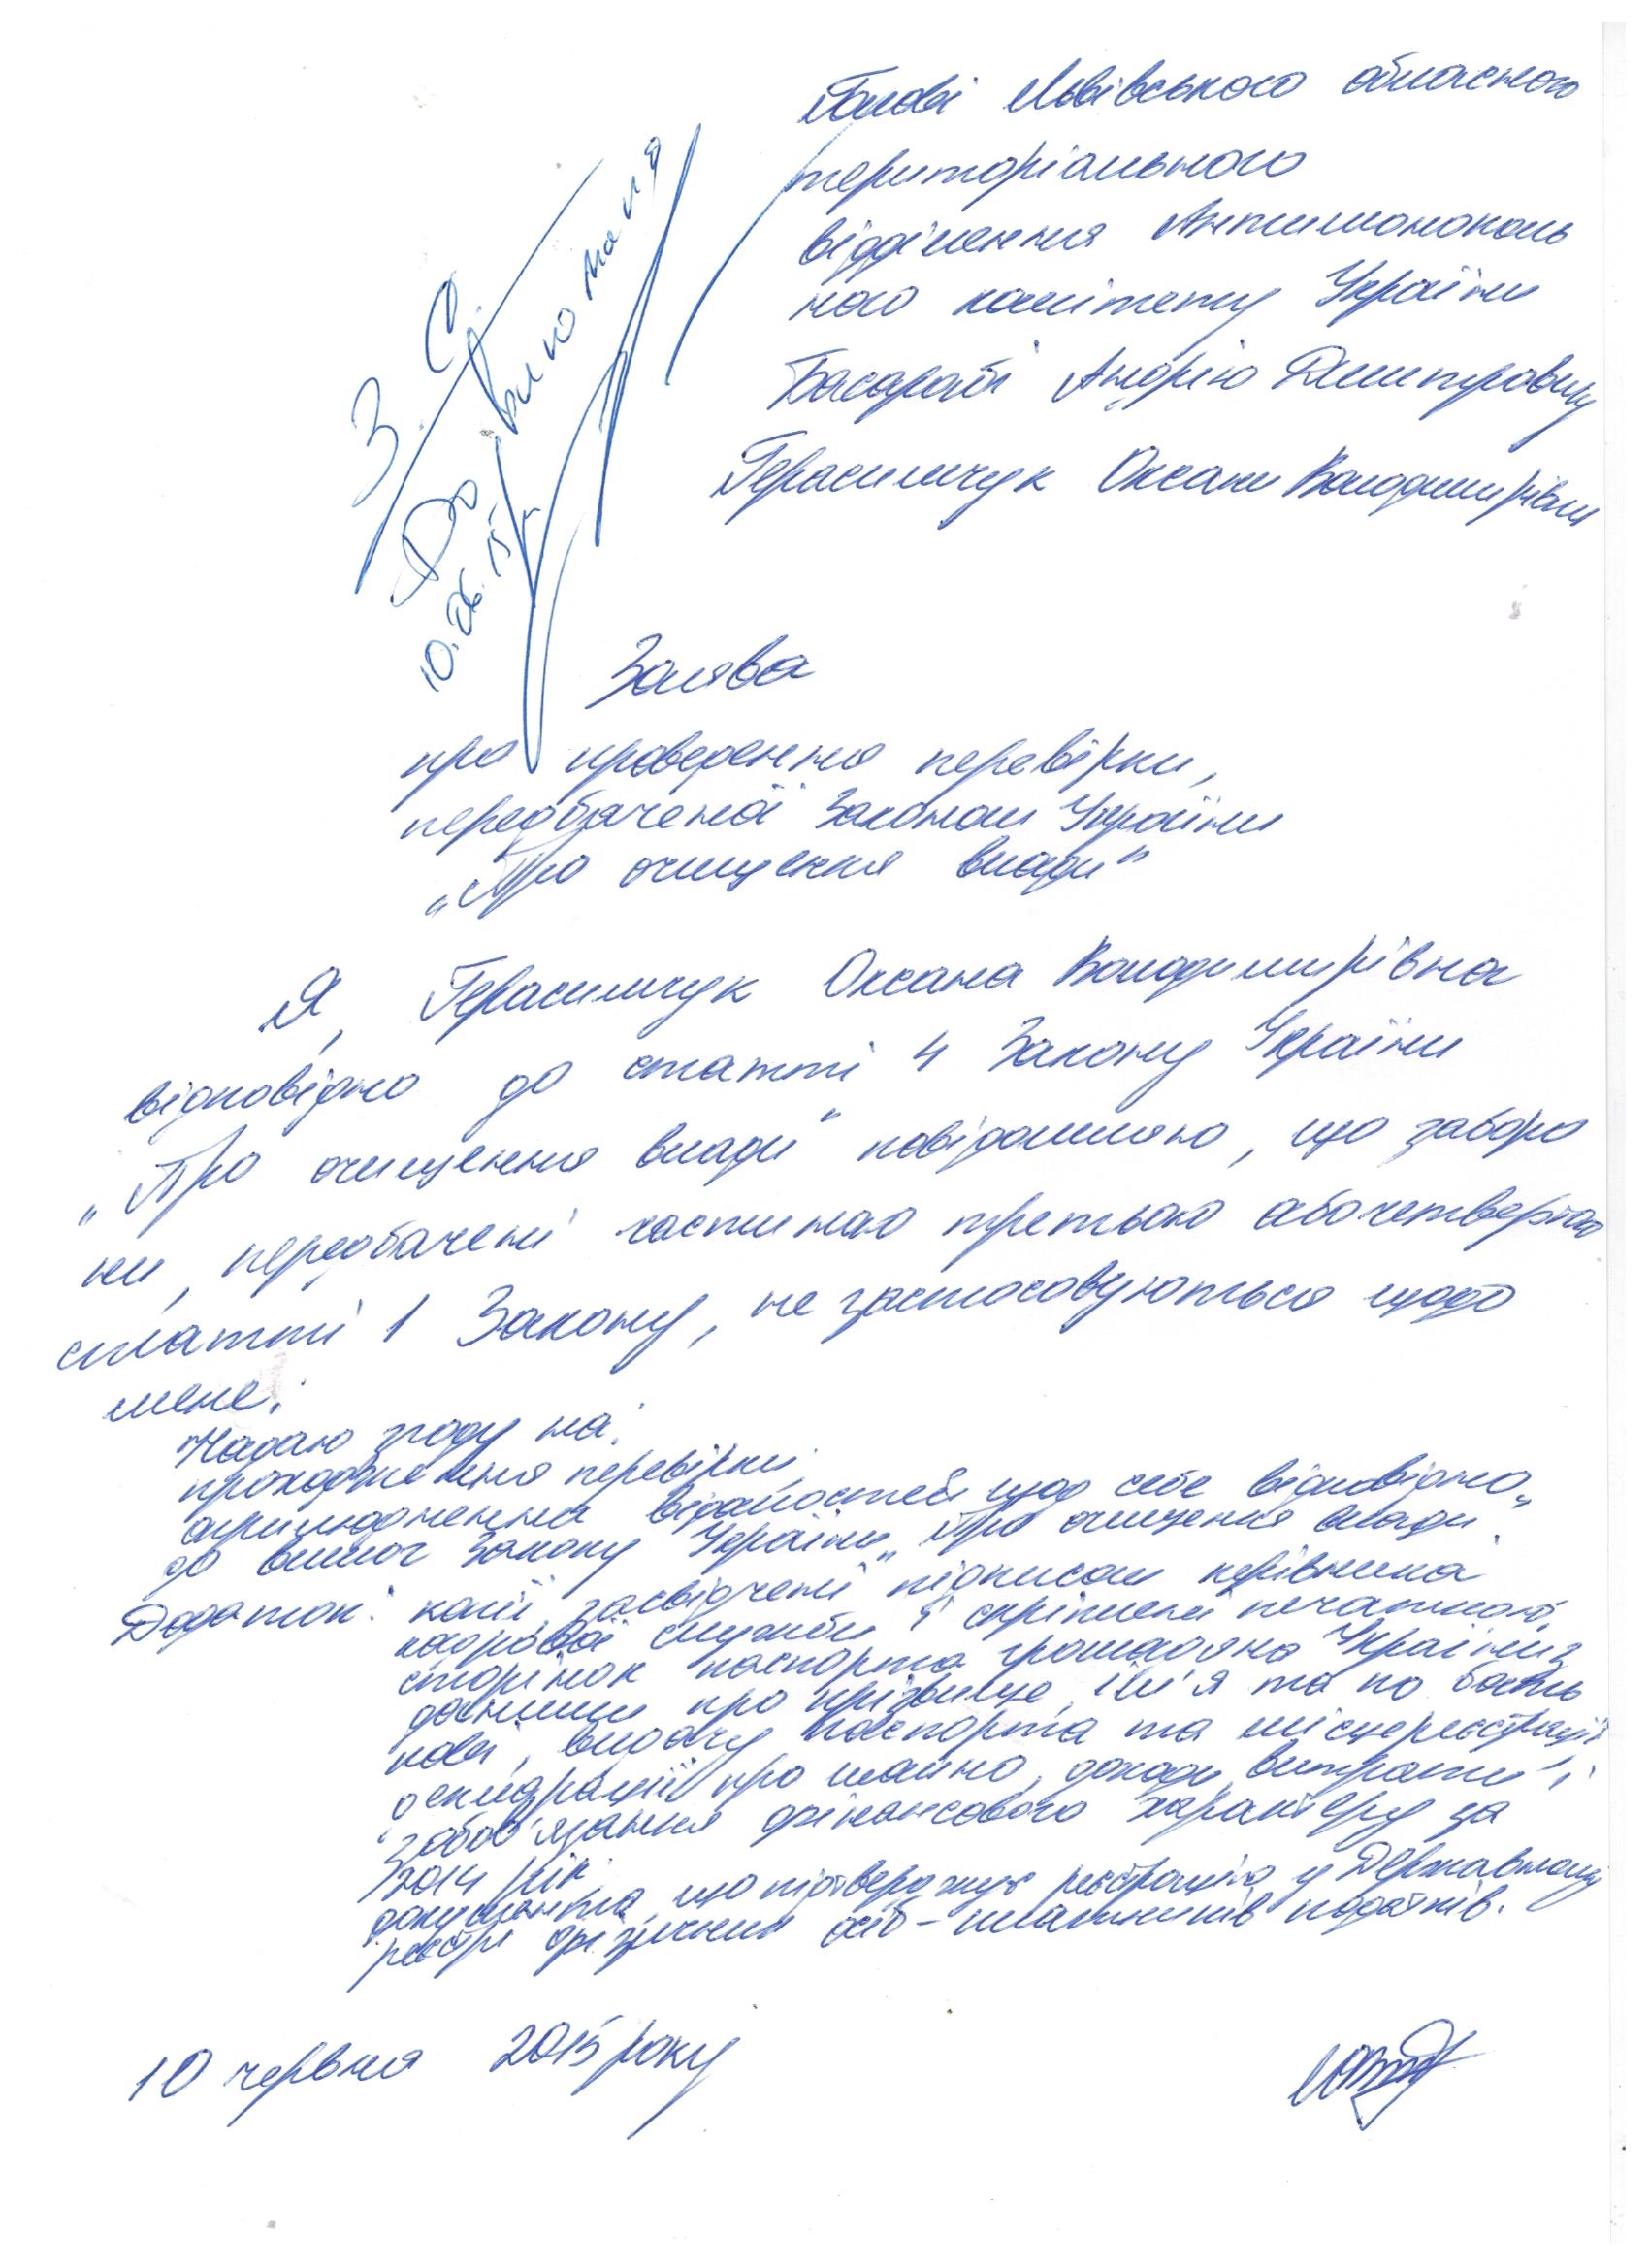 Голові Львівського обласного
територіального
відділення Антимонополь
ного комітету України
Басарабі Андрію Дмитровичу
Герасимчук Оксани Володимирівни
З. С.
До виконання
10.06.15
Заява
про проведення перевірки,
передбаченої Законом України
„Про очищення влади"
Я, Герасимчук Оксана Володимирівна
відповідно до статті 4 Закону України
„Про очищення влади" повідомляю, що заборо
ни, передбачені частиною третьою або четвертою
статті 1 Закону, не застосовуються щодо
мене.
Надаю згоду на:
проходження перевірки,
оприлюднення відомостей щодо себе відповідно
до вимог Закону України „Про очищення влади".
Додаток: копії, засвідчені підписом керівника
кадрової служби і скріплені печаткою,
сторінок паспорта громадянина України з
даними про прізвище, ім'я та по бать
кові, видачу паспорта та місце реєстрації,
декларації про майно, доходи, витрати і
зобов'язання фінансового характеру за
2014 рік.
документа, що підтверджує реєстрацію у Державному
реєстрі фізичних осіб - платників податків.
10 червня 2015 року